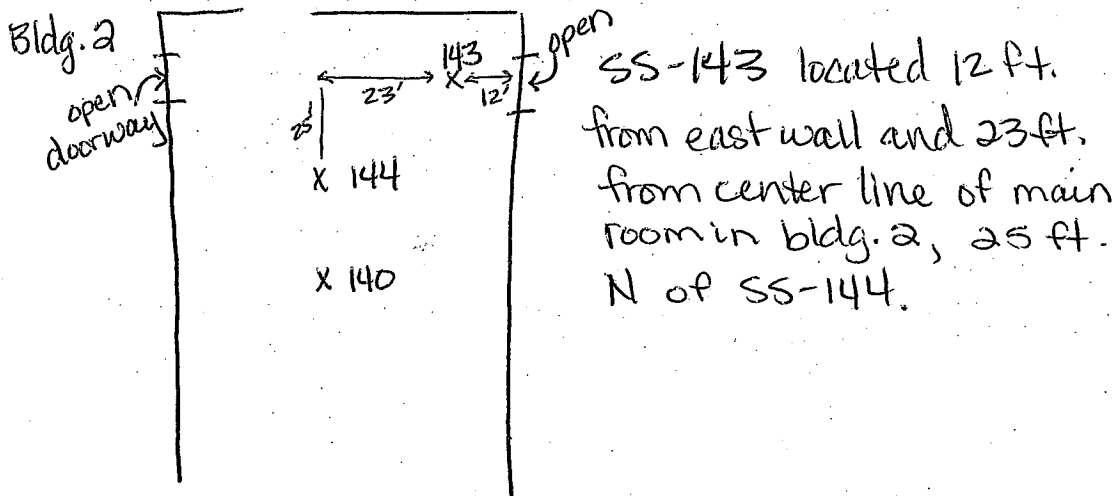 Bldg. 2
open doorway
143
open
23'
12'
25'
X 144
X 140
SS-143 located 12 ft.
from east wall and 23 ft.
from center line of main
room in bldg. 2, 25 ft.
N of SS-144.